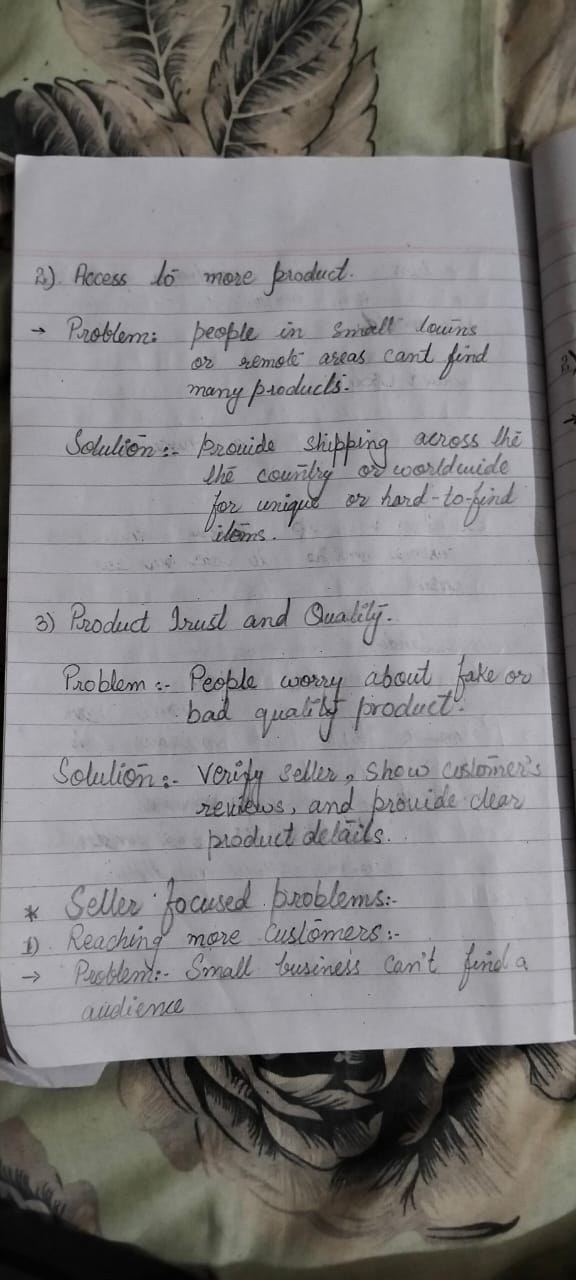 2). Access to more product.
→ Problem: people in small towns
or remote areas can't find
many products.
Solution :- Provide shipping across the
the country or worldwide
for unique or hard-to-find
items.
3) Product Trust and Quality.
Problem :- People worry about fake or
bad quality product.
Solution :- Verify seller, show customer's
reviews, and provide clear
product details.
* Seller focused problems:-
1). Reaching more customers:-
→ Problem:- Small business can't find a
audience